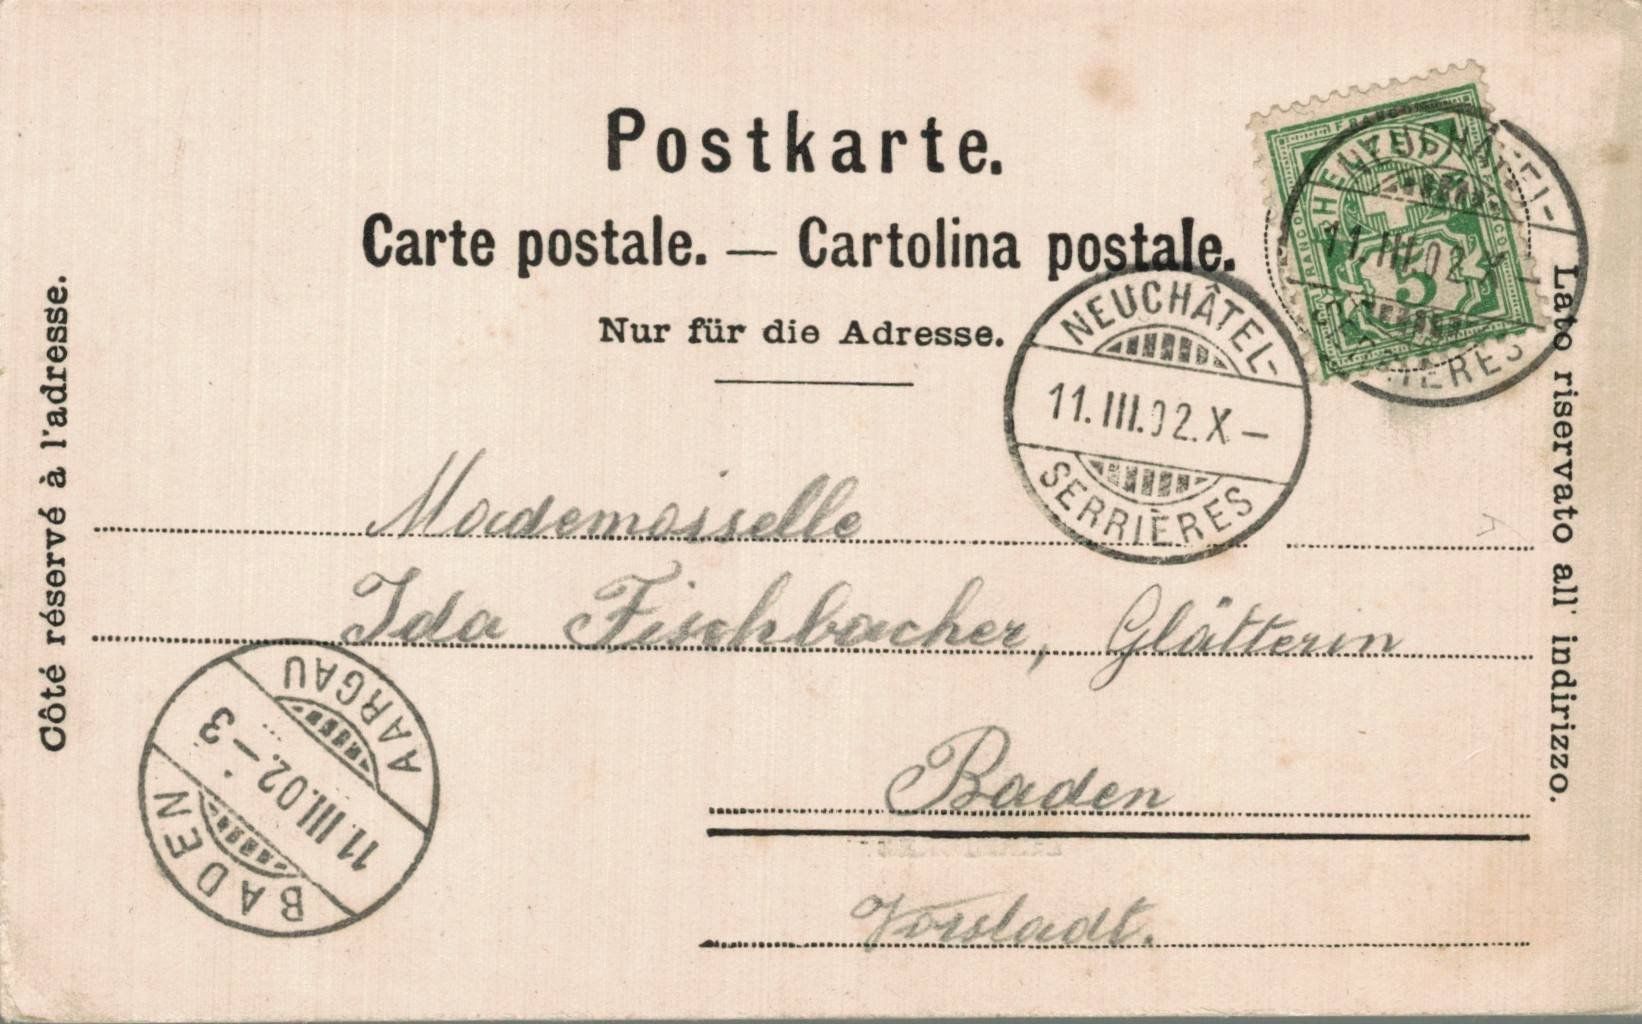 Postkarte.
Carte postale. — Cartolina postale.
Nur für die Adresse.
Côté réservé à l'adresse.
Lato riservato all' indirizzo.
FRANCO
5
NEUCHÂTEL-
11.III.02.X
SERRIÈRES
NEUCHÂTEL-
11.III.02.X –
SERRIÈRES
Mademoiselle
Ida Fischbacher, Glätterin
Baden
Vorstadt.
BADEN
11.III.02.–3
AARGAU